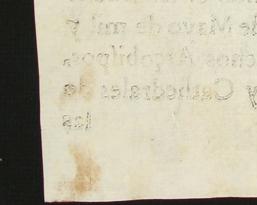 de Mayo de mil y
chos Arçobispos,
y Cathedrales de
las